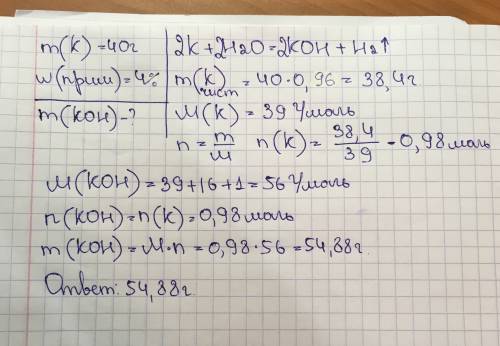 m(K)=40г
w(прим)=4%
m(KOH)-?
2K+2H2O=2KOH+H2↑
m(K)чист=40·0,96=38,4г
M(K)=39 г/моль
n=m/M n(K)=38,4/39-0,98моль
M(KOH)=39+16+1=56 г/моль
n(KOH)=n(K)=0,98моль
m(KOH)=M·n=0,98·56=54,88г
Ответ: 54,88г